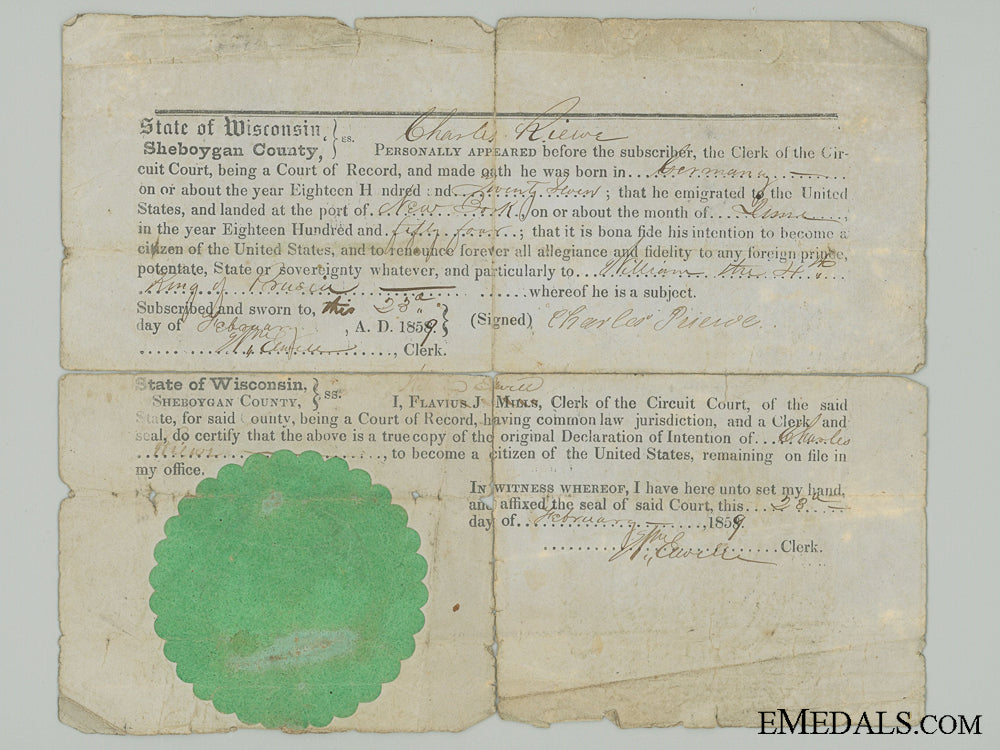 State of Wisconsin, } ss. Charles Riewe
Sheboygan County, PERSONALLY APPEARED before the subscriber, the Clerk of the Cir-
cuit Court, being a Court of Record, and made oath he was born in Germany
on or about the year Eighteen H ndred and Twenty Seven ; that he emigrated to the United
States, and landed at the port of New York, on or about the month of June,
in the year Eighteen Hundred and fifty four ; that it is bona fide his intention to become a
citizen of the United States, and to renounce forever all allegiance and fidelity to any foreign prince,
potentate, State or sovereignty whatever, and particularly to William the 4th
King of Prusia whereof he is a subject.
Subscribed and sworn to, this 28d
day of February, A. D. 1859. } (Signed) Charles Riewe.
Clerk.
State of Wisconsin, } ss.
SHEBOYGAN COUNTY, I, FLAVIUS J MILLS, Clerk of the Circuit Court, of the said
State, for said County, being a Court of Record, having common law jurisdiction, and a Clerk and
seal, do certify that the above is a true copy of the original Declaration of Intention of Charles
Riewe, to become a citizen of the United States, remaining on file in
my office.
IN WITNESS WHEREOF, I have here unto set my hand,
and affixed the seal of said Court, this 28d
day of February, 1859.
Clerk.
EMEDALS.COM